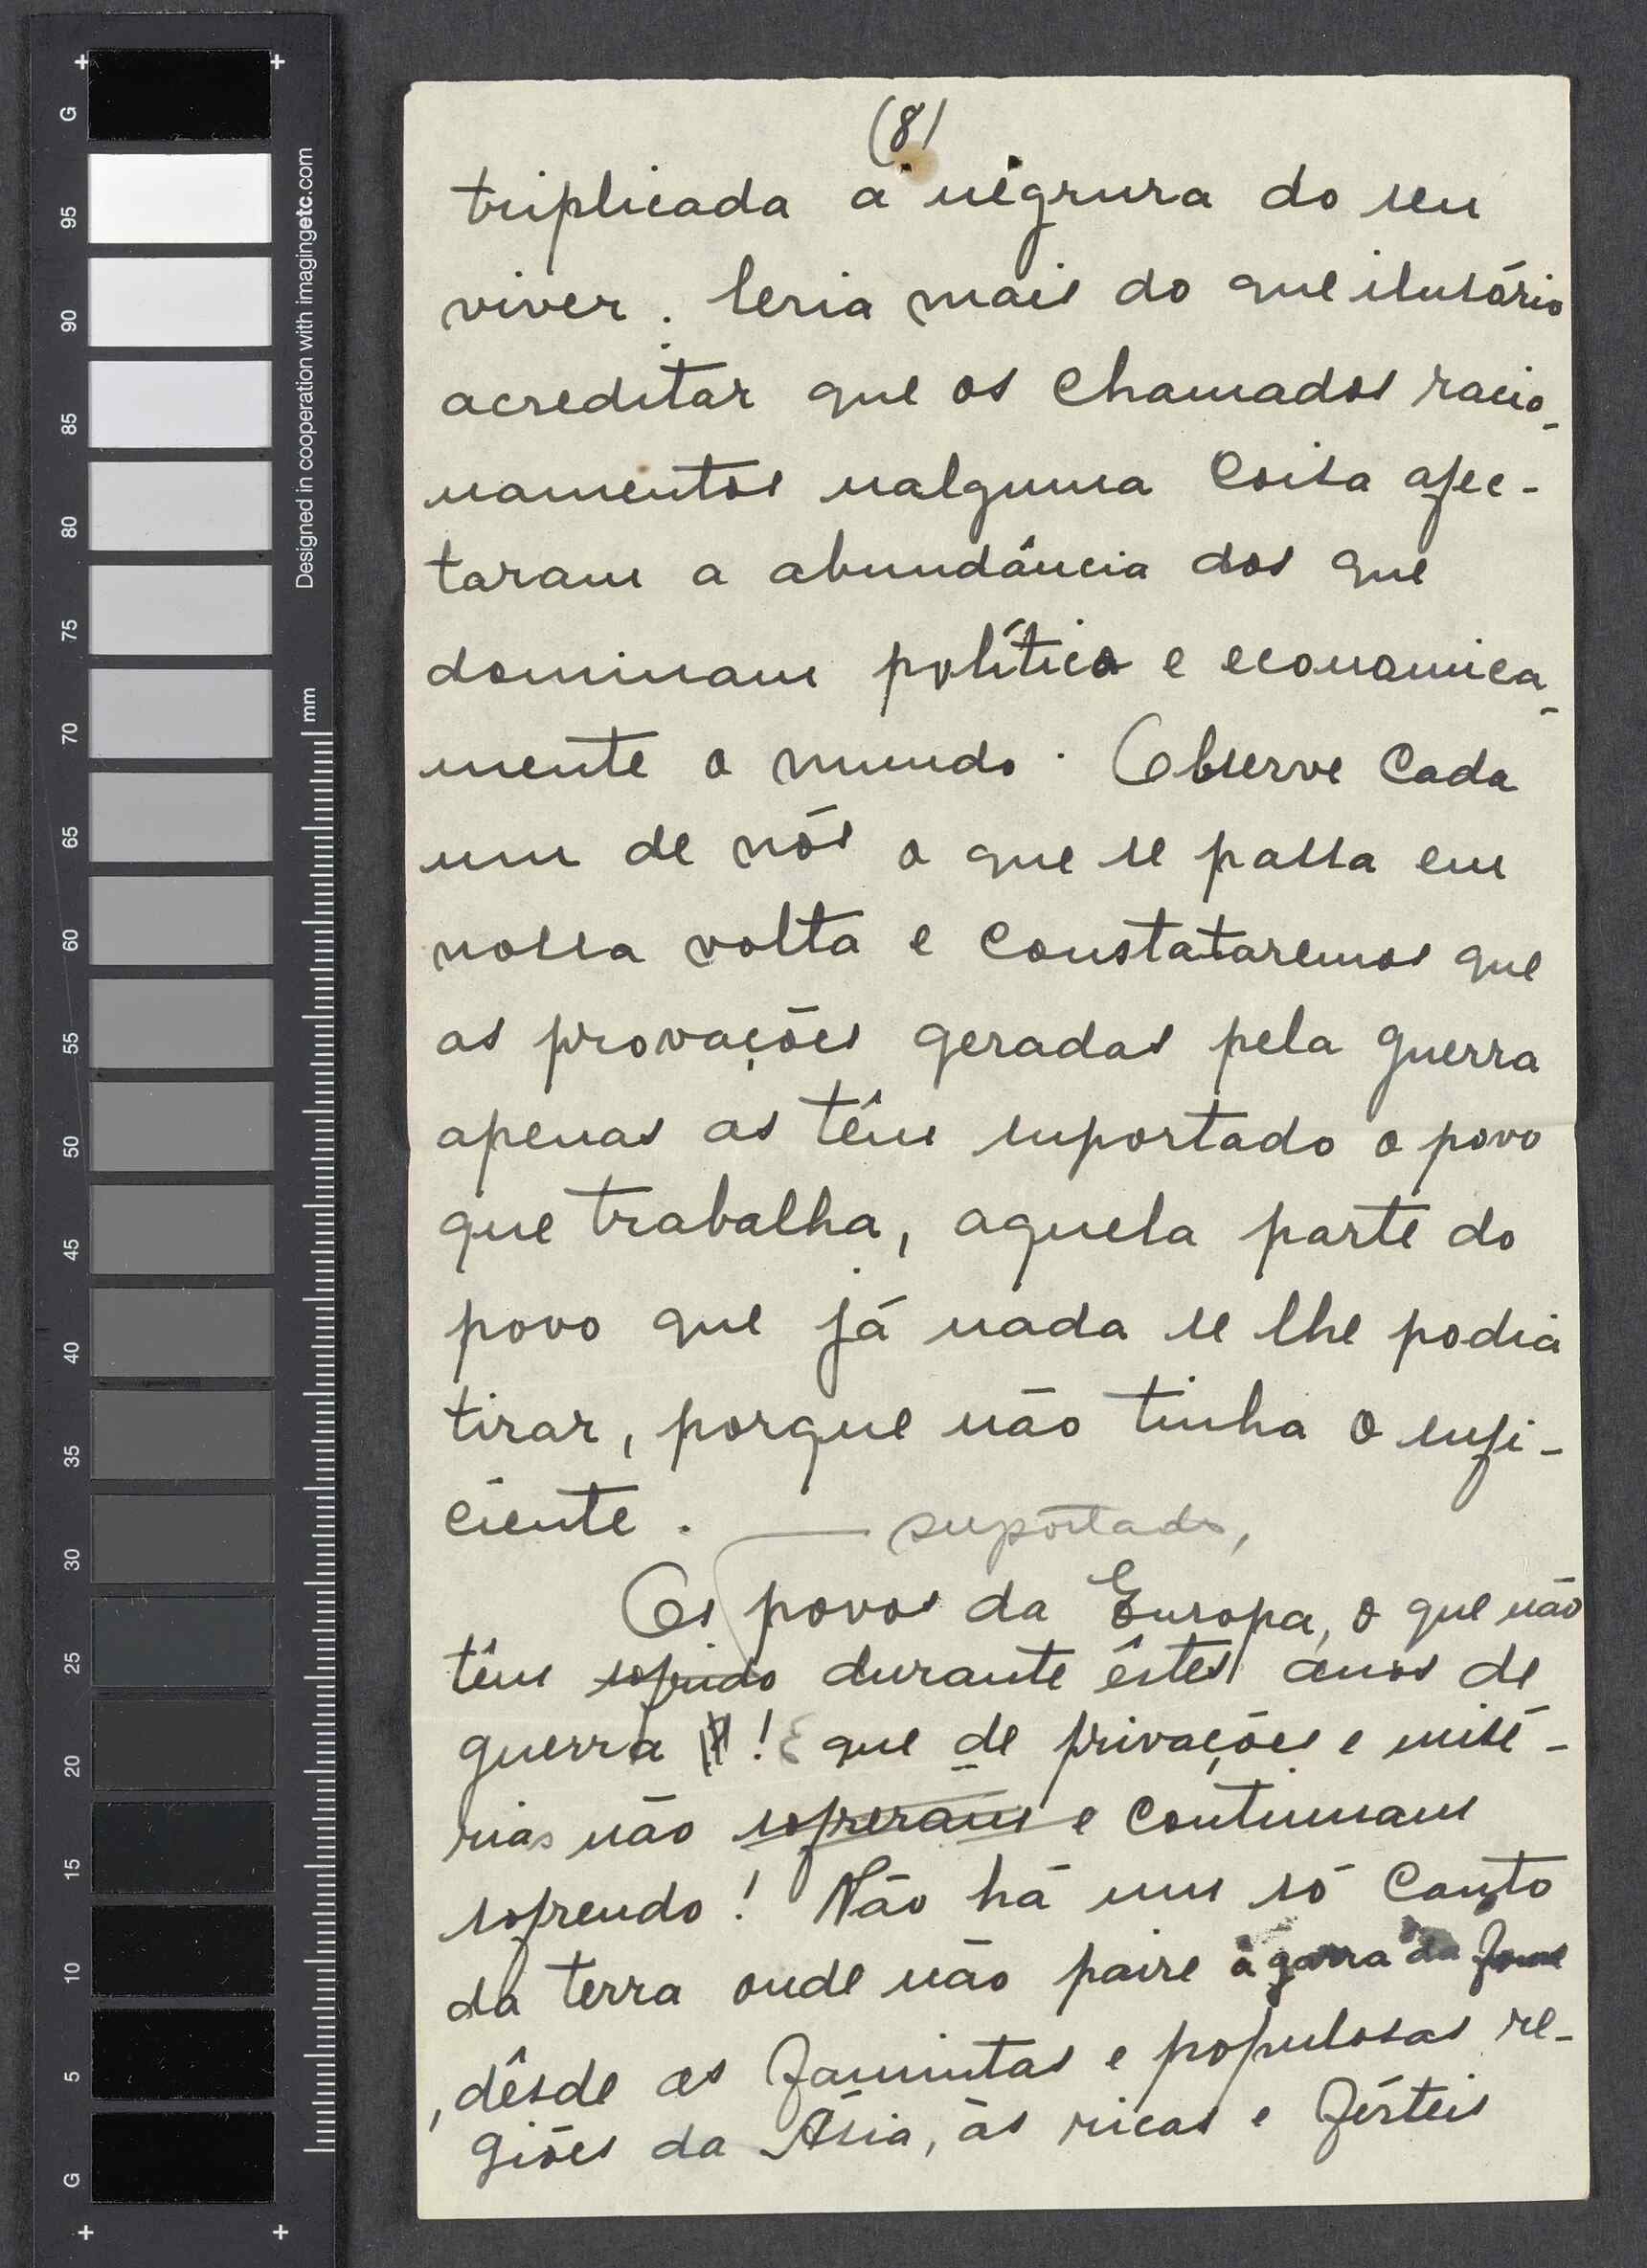 (8)
triplicada a negrura do seu
viver. Seria mais do que ilusório
acreditar que os chamados racio-
namentos nalguma coisa afec-
taram a abundância dos que
dominam política e economica-
mente o mundo. Observe cada
um de nós o que se passa em
nossa volta e constataremos que
as provações geradas pela guerra
apenas as têm suportado o povo
que trabalha, aquela parte do
povo que já nada se lhe podia
tirar, porque não tinha o sufi-
ciente.
suportado,
Os povos da Europa, o que não
têm sofrido durante êstes anos de
guerra ! E que de privações e misé-
rias não sofreram e continuam
sofrendo! Não há um só canto
da terra onde não paire a garra da fome
, dêsde as famintas e populosas re-
giões da Ásia, às ricas e férteis
G
95
90
85
80
75
70
65
60
55
50
45
40
35
30
25
20
15
10
5
G
mm
Designed in cooperation with imagingetc.com